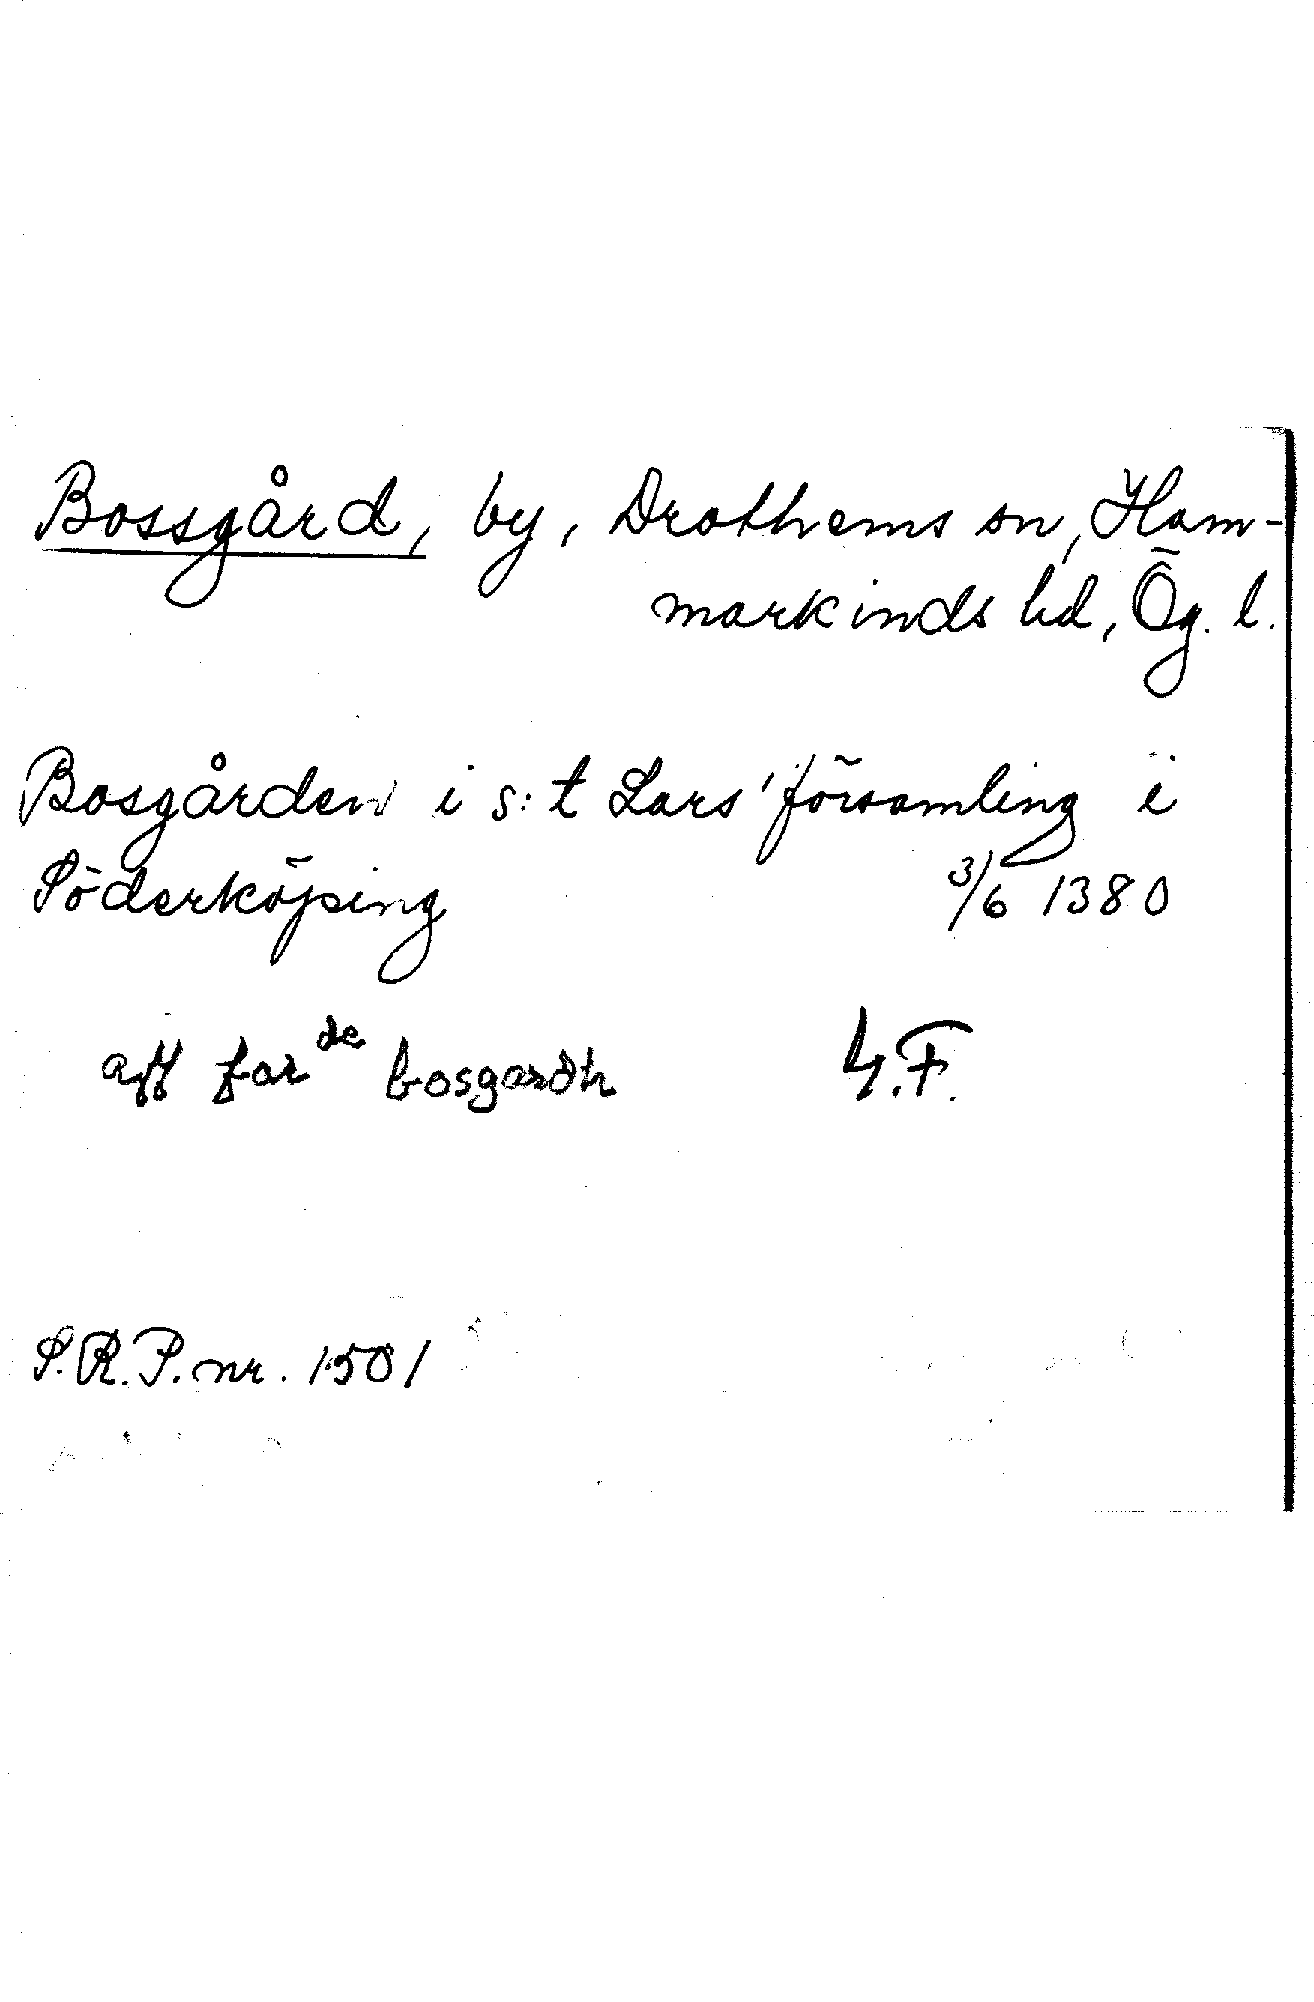 Bossgård, by, Drothems sn, Ham-
markinds hd, Ög. l.
Bosgården i s:t Lars' församling i
Söderköping 3/6 1380
aff for de bosgardh
S.R.P. nr. 1501